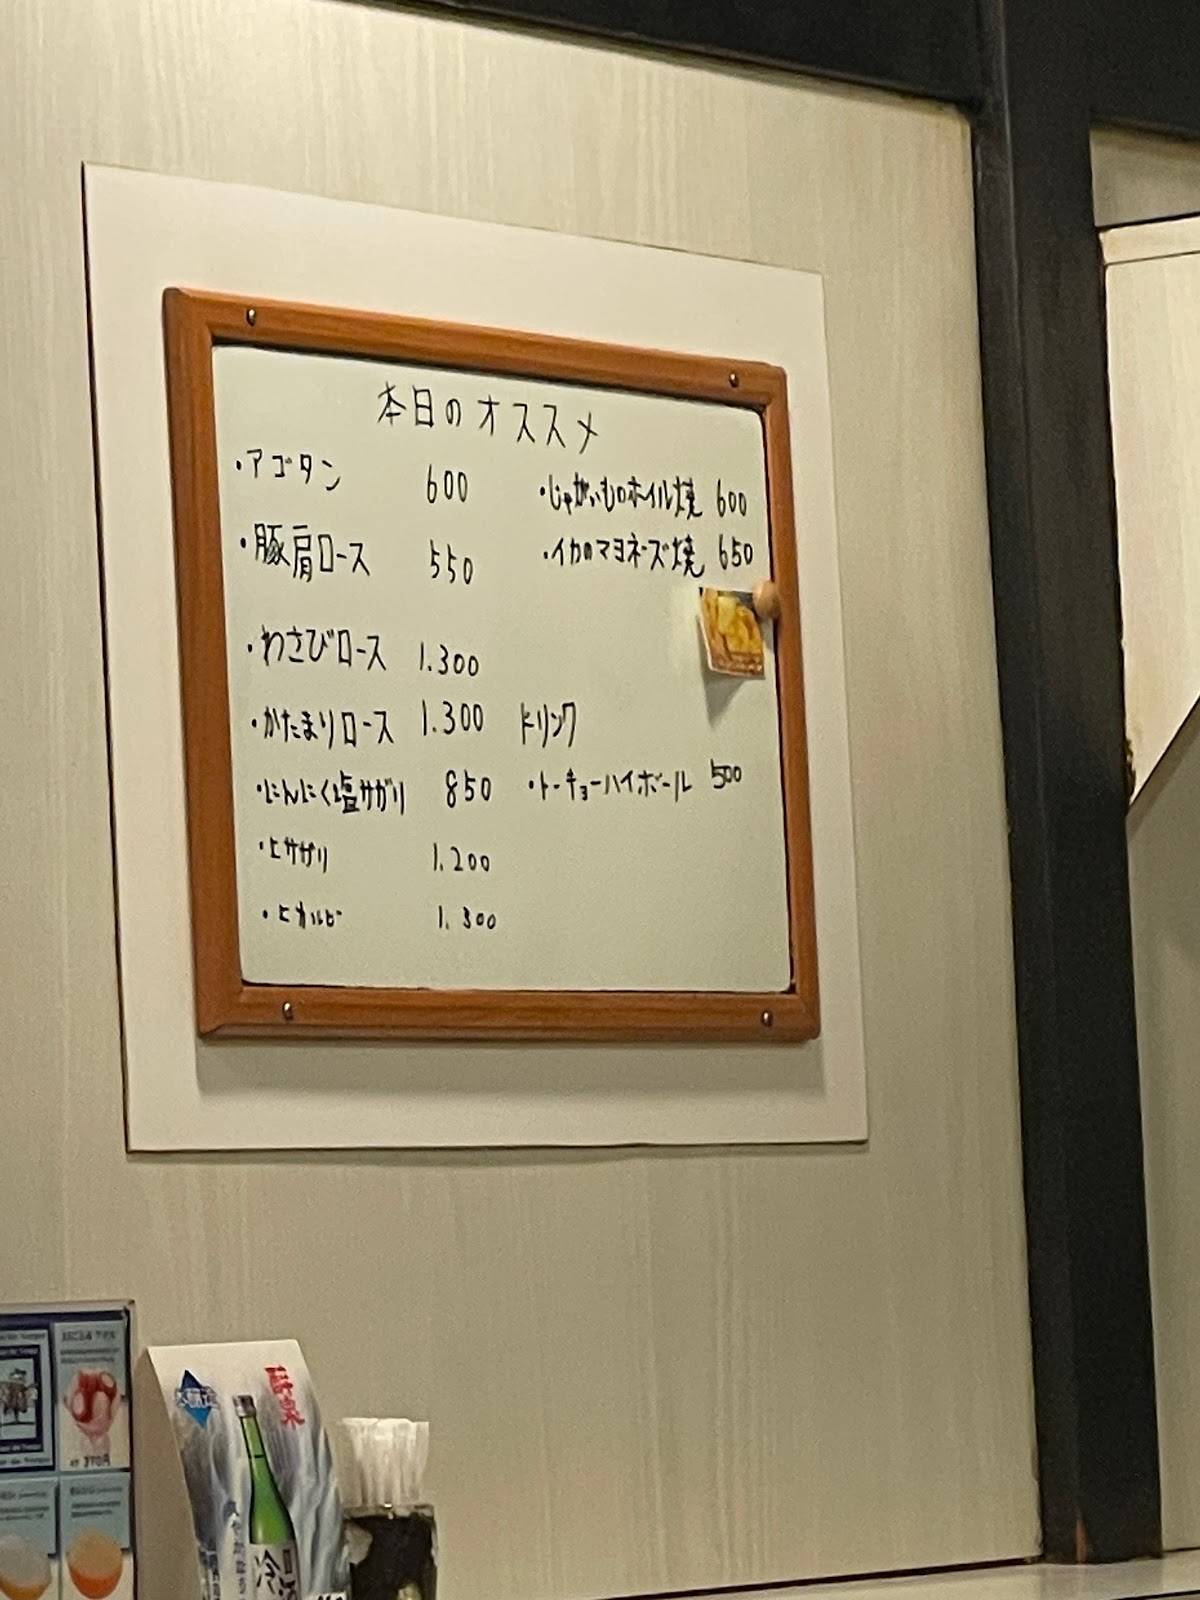 本日のオススメ
・アゴタン 600
・豚肩ロース 550
・わさびロース 1.300
・かたまりロース 1.300
・にんにく塩サガリ 850
・上サガリ 1.200
・上カルビ 1.300
・じゃがいものホイル焼 600
・イカのマヨネーズ焼 650
ドリンク
・トーキョーハイボール 500
本醸造
冷